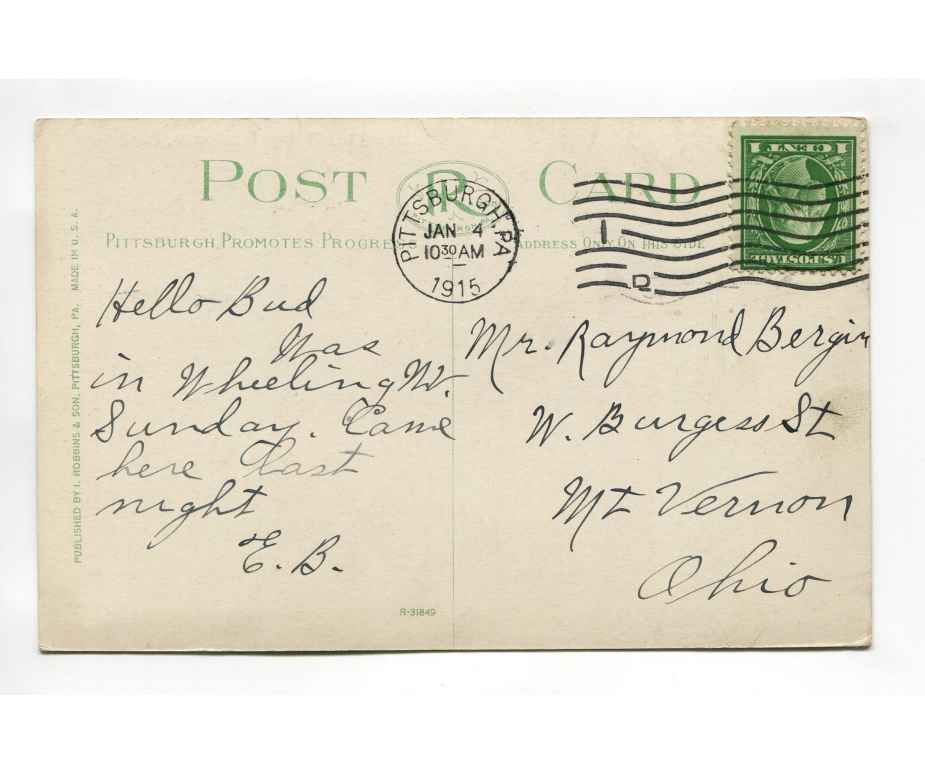 POST CARD
PITTSBURGH PROMOTES PROGRE
ADDRESS ONLY ON THIS SIDE
PITTSBURGH, PA
JAN 4
10 30 AM
1915
1
D
1 CENT 1
U.S. POSTAGE
R
PUBLISHED BY I. ROBBINS & SON, PITTSBURGH, PA. MADE IN U.S.A.
Hello Bud
Was
in Wheeling W.
Sunday. Came
here last
night
E. B.
Mr. Raymond Bergin
W. Burgess St
Mt Vernon
Ohio
R-31849